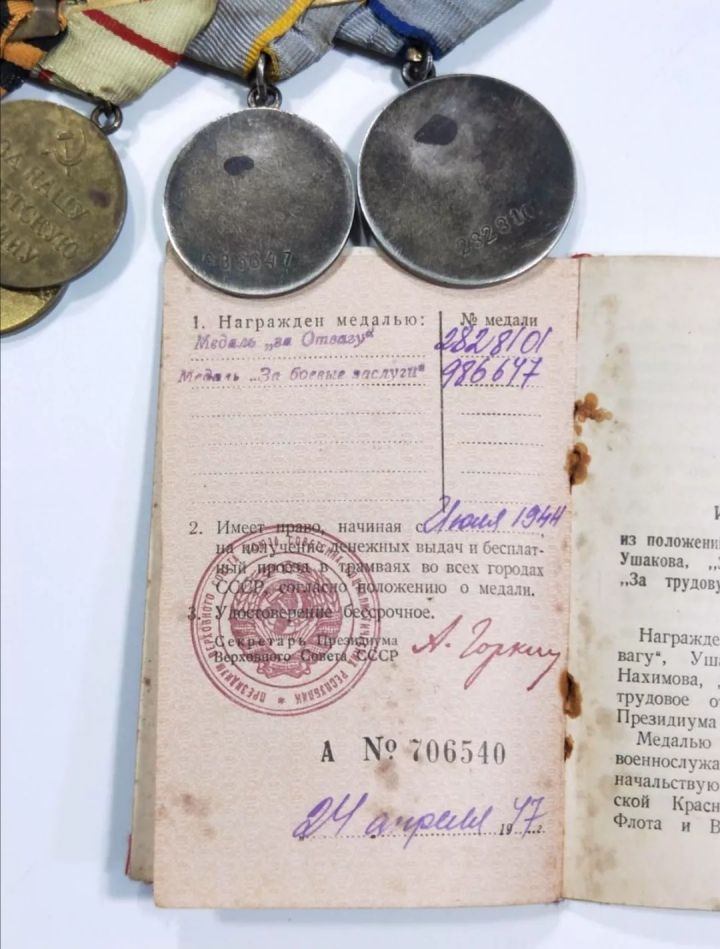 ЗА НАШУ
СОВЕТСКУЮ
РОДИНУ
986647
2828101
1. Награжден медалью:
№ медали
Медаль „за Отвагу“
2828101
Медаль „За боевые заслуги“
986647
2. Имеет право, начиная с Июля 1944
на получение денежных выдач и бесплат-
ный проезд в трамваях во всех городах
СССР, согласно положению о медали.
3. Удостоверение бессрочное.
Секретарь Президиума
Верховного Совета СССР
А. Горкин
ПРЕЗИДИУМ ВЕРХОВНОГО СОВЕТА СОЮЗА СОВЕТСКИХ СОЦИАЛИСТИЧЕСКИХ РЕСПУБЛИК
А № 706540
24 апреля 1947 г.
И
из положени
Ушакова, „
„За трудову
Награжде
вагу“, Уша
Нахимова, „
трудовое от
Президиума
Медалью
военнослужа
начальствую
ской Красн
Флота и В